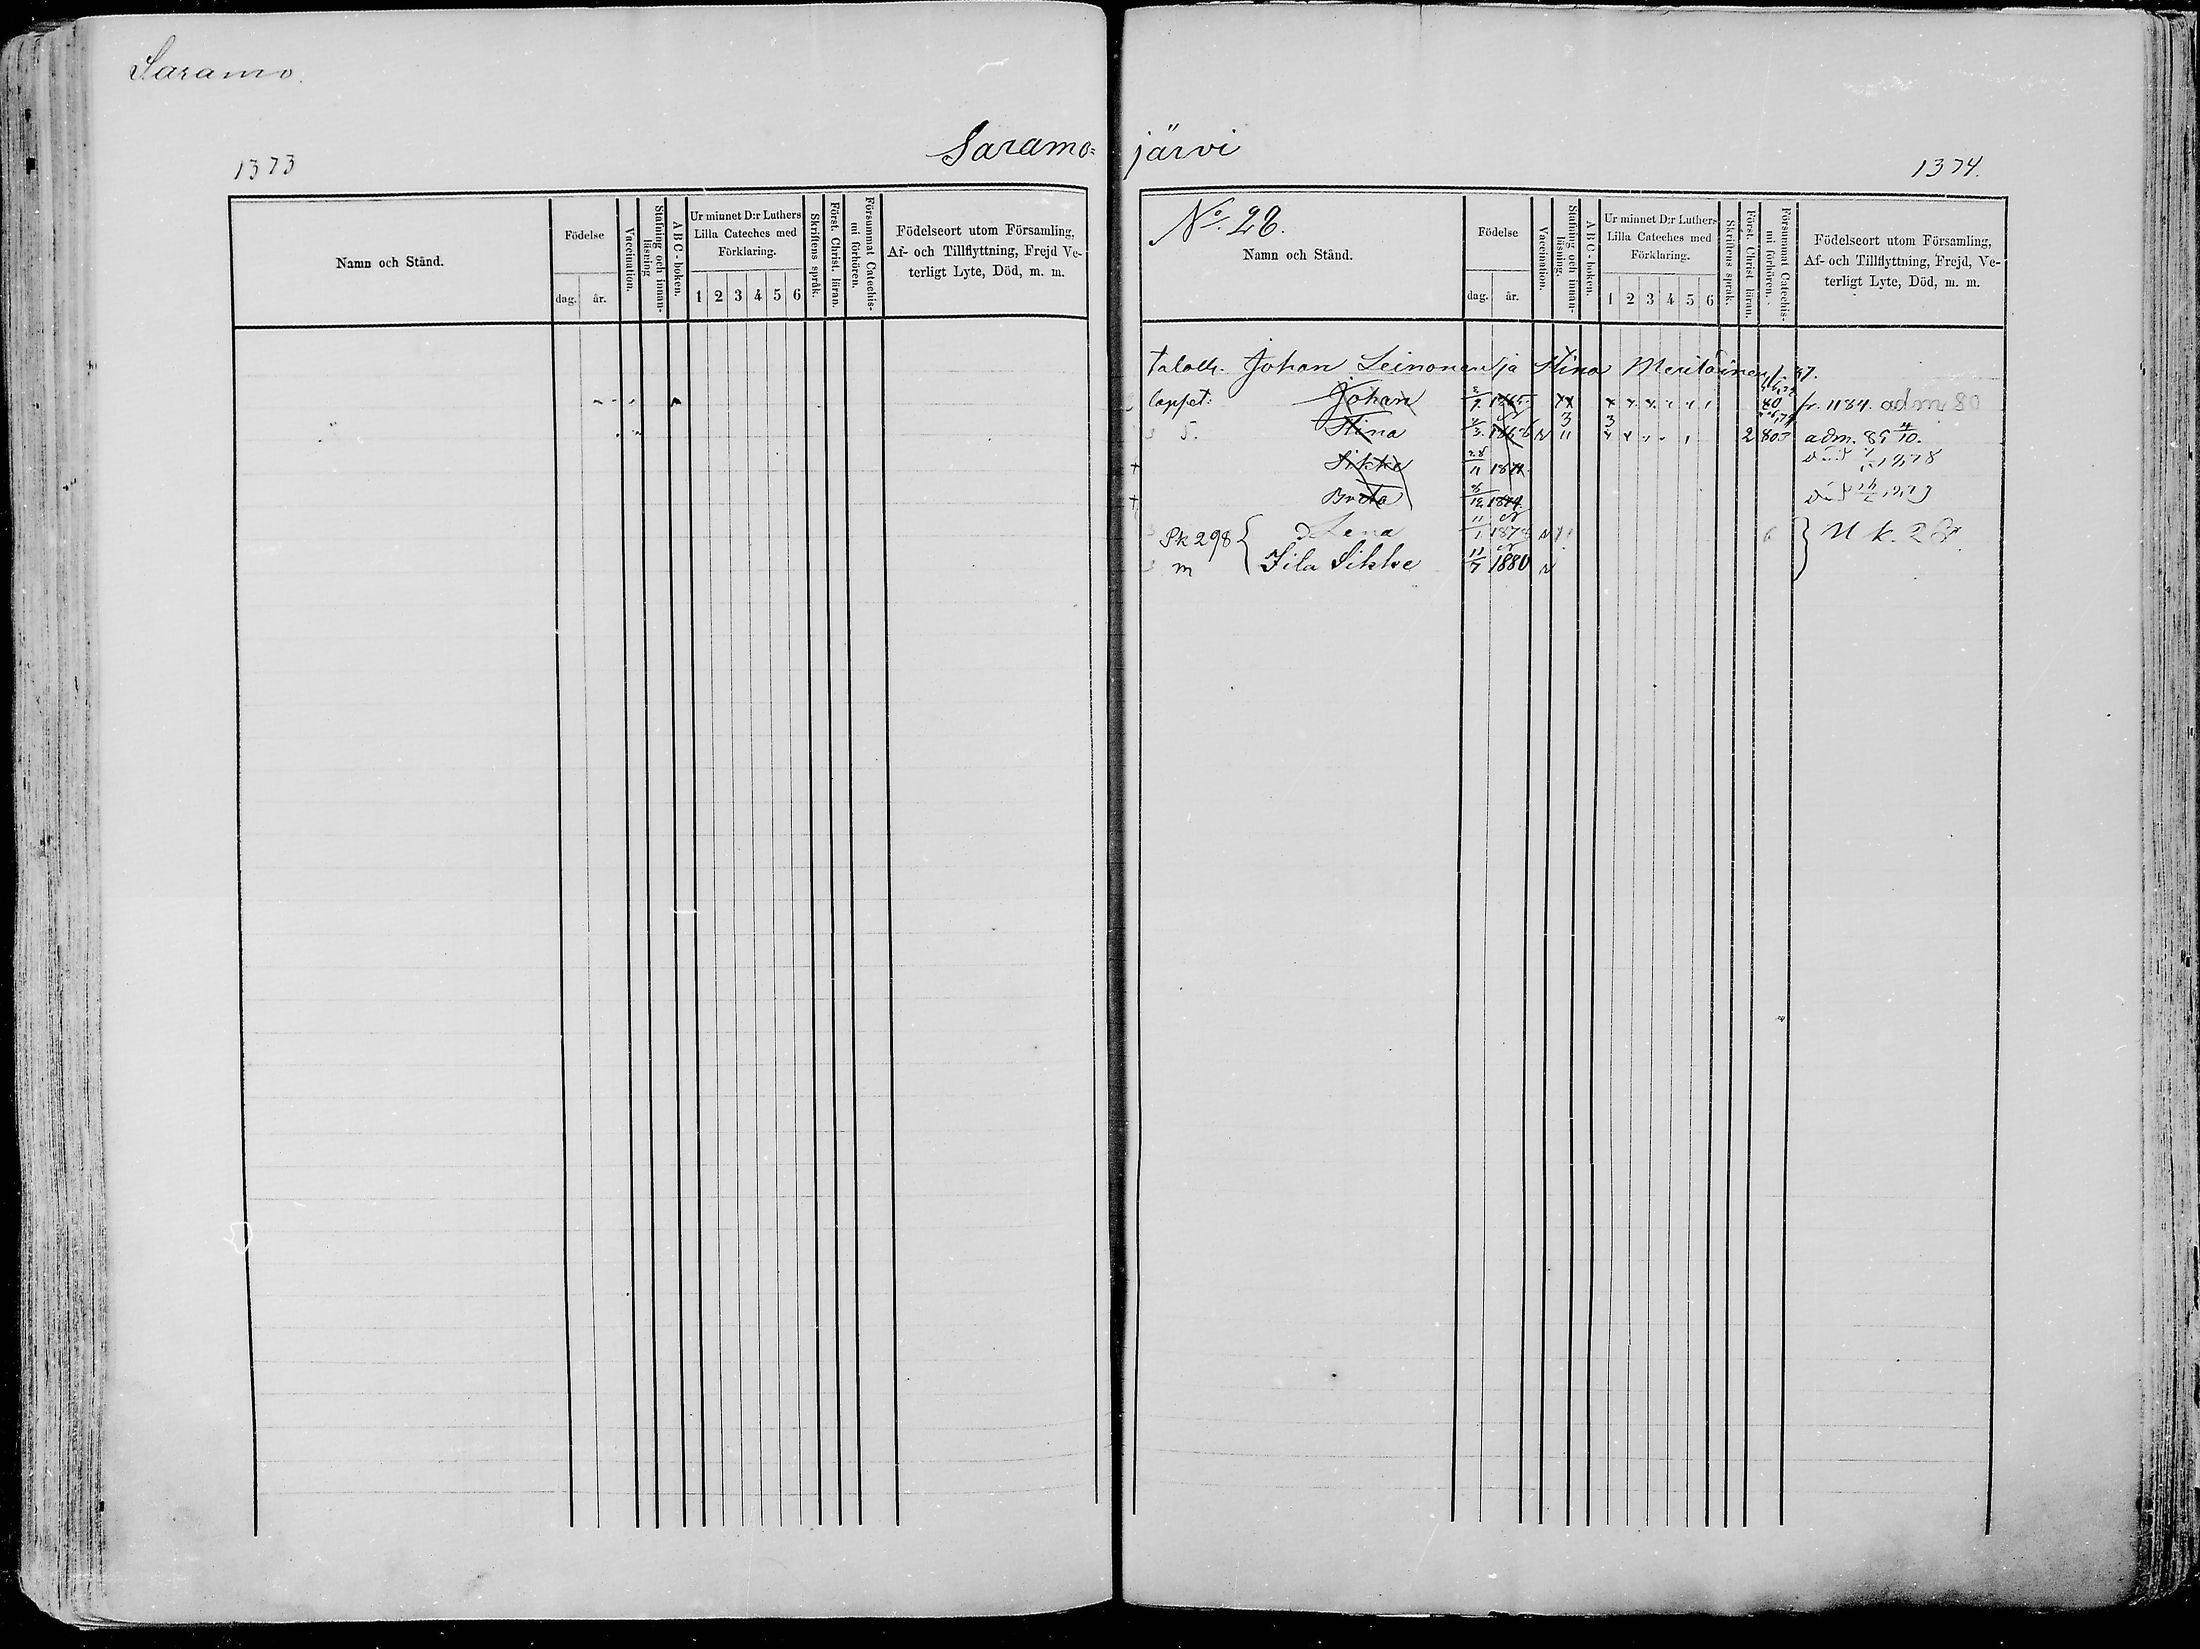 Saramo.
Saramo=
1373
Namn och Stånd.
Födelse
dag.
år.
Vaccination.
Stafning och innan-
läsning.
A B C - boken.
Ur minnet D:r Luthers
Lilla Cateches med
Förklaring.
1 2 3 4 5 6
Skriftens språk.
Först. Christ. läran.
Försummat Catechis-
mi förhören.
Födelseort utom Församling,
Af- och Tillflyttning, Frejd Ve-
terligt Lyte, Död, m. m.
järvi
1374.
No. 28.
Namn och Stånd.
Födelse
dag.
år.
Vaccination.
Stafning och innan-
läsning.
A B C - boken.
Ur minnet D:r Luthers
Lilla Cateches med
Förklaring.
1 2 3 4 5 6
Skriftens språk.
Först. Christ läran.
Försummat Catechis-
mi förhören.
Födelseort utom Församling,
Af- och Tillflyttning, Frejd, Ve-
terligt Lyte, Död, m. m.
Johan Leinonen ja Stina Meriläinen
Johan 80 fr. 1184. adm 80
Stina 2 803 adm. 85 4/10.
† Sikke 28/11 1878
† Brita
Sk 298 { Lena 11/1 } U k. 28
m Fila Sikke 11/7 1880